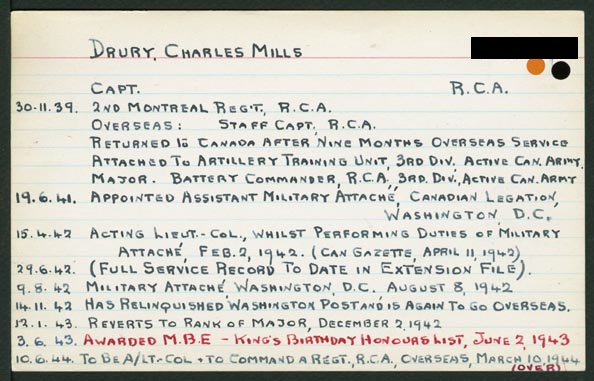 DRURY, CHARLES MILLS
CAPT. R.C.A.
30.11.39. 2ND MONTREAL REG'T., R.C.A.
OVERSEAS: STAFF CAPT., R.C.A.
RETURNED TO CANADA AFTER NINE MONTHS OVERSEAS SERVICE
ATTACHED TO ARTILLERY TRAINING UNIT, 3RD DIV. ACTIVE CAN. ARMY.
MAJOR. BATTERY COMMANDER, R.C.A., 3RD. DIV., ACTIVE CAN. ARMY
19.6.41. APPOINTED ASSISTANT MILITARY ATTACHÉ, CANADIAN LEGATION,
WASHINGTON, D.C.
15.4.42 ACTING LIEUT.-COL., WHILST PERFORMING DUTIES OF MILITARY
ATTACHÉ, FEB. 2, 1942. (CAN GAZETTE, APRIL 11, 1942)
29.6.42. (FULL SERVICE RECORD TO DATE IN EXTENSION FILE).
9.8.42 MILITARY ATTACHÉ, WASHINGTON, D.C. AUGUST 8, 1942
14.11.42 HAS RELINQUISHED WASHINGTON POST AND IS AGAIN TO GO OVERSEAS.
12.1.43. REVERTS TO RANK OF MAJOR, DECEMBER 2, 1942
3.6.43. AWARDED M.B.E - KING'S BIRTHDAY HONOURS LIST, JUNE 2, 1943
10.6.44. TO BE A/LT-COL + TO COMMAND A REGT., R.C.A., OVERSEAS, MARCH 10, 1944
(OVER)